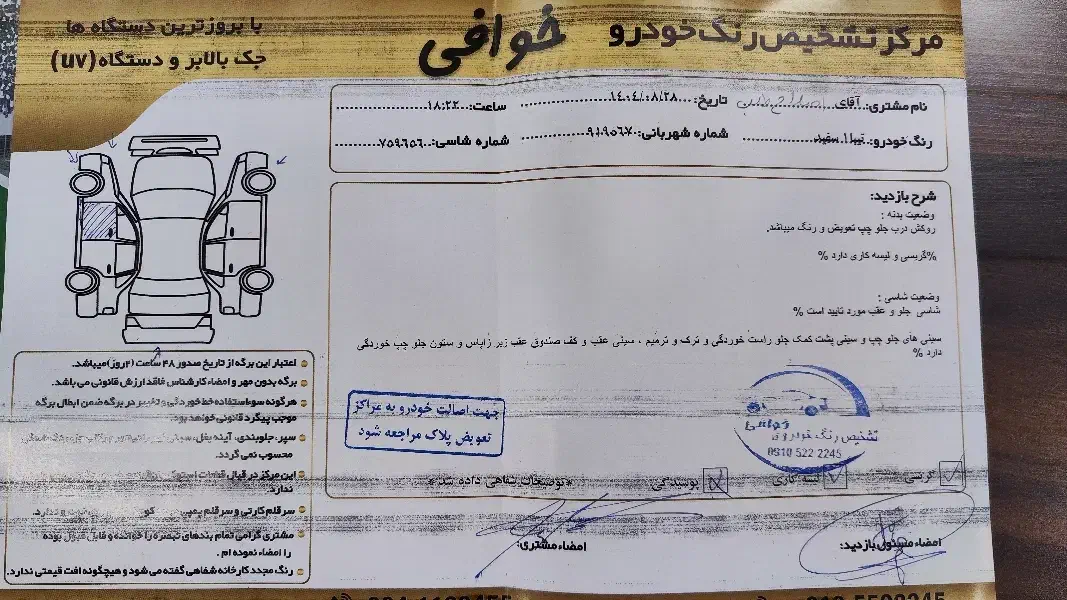 مرکز تشخیص رنگ خودرو خوافی
با بروزترین دستگاه ها
جک بالابر و دستگاه (uv)
نام مشتری: آقای
تاریخ: ۱۴۰۴/۰۸/۲۸
ساعت: ۱۸:۲۲
رنگ خودرو: تیبا ۱ سفید
شماره شهربانی: ۹۱۹۵۶۷
شماره شاسی: ۷۵۹۶۵۶
شرح بازدید:
وضعیت بدنه :
روکش درب جلو چپ تعویض و رنگ میباشد.
%گریسی و لیسه کاری دارد %
وضعیت شاسی :
شاسی جلو و عقب مورد تایید است %
سینی های جلو چپ و سینی پشت کمک جلو راست خوردگی و ترک و ترمیم ، سینی عقب و کف صندوق عقب زیر زاپاس و ستون جلو چپ خوردگی
دارد %
جهت اصالت خودرو به مراکز
تعویض پلاک مراجعه شود
خوافی
تشخیص رنگ خودرو
0910 522 2245
لیسه کاری
پوسیدگی
*توضیحات شفاهی داده شد*
امضاء مسئول بازدید:
امضاء مشتری:
اعتبار این برگه از تاریخ صدور ۴۸ ساعت (۲روز) میباشد.
برگه بدون مهر و امضاء کارشناس فاقد ارزش قانونی می باشد.
هرگونه سوءاستفاده خط خوردگی و تغییر در برگه ضمن ابطال برگه
موجب پیگرد قانونی خواهد بود.
سپر، جلوبندی، آینه بغل،
محسوب نمی گردد.
این مرکز در قبال قطعات
ندارد.
سر قلم کارتی و سر قلم
مشتری گرامی تمام بندهای تبصره را خوانده و قابل قبول بوده
را امضاء نموده ام .
رنگ مجدد کارخانه شفاهی گفته می شود و هیچگونه افت قیمتی ندارد.